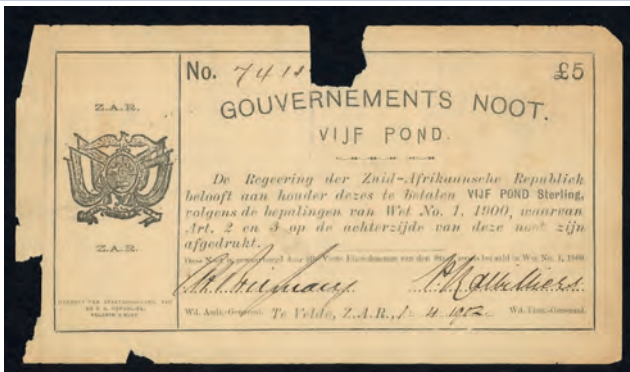 No. 7418
£5
Z.A.R.
GOUVERNEMENTS NOOT.
VIJF POND.
De Regeering der Zuid-Afrikaansche Republiek
belooft aan houder dezes te betalen VIJF POND Sterling,
volgens de bepalingen van Wet No. 1, 1900, waarvan
Art. 2 en 3 op de achterzijde van deze noot zijn
afgedrukt.
Z.A.R.
Deze Noot is gewaarborgd door alle Vaste Eigendommen van den Staat, reeds bepaald in Wet No. 1, 1900.
Wd. Audt.-Generaal. Te Velde, Z.A.R., 1- 4 1902 Wd. Thes.-Generaal.